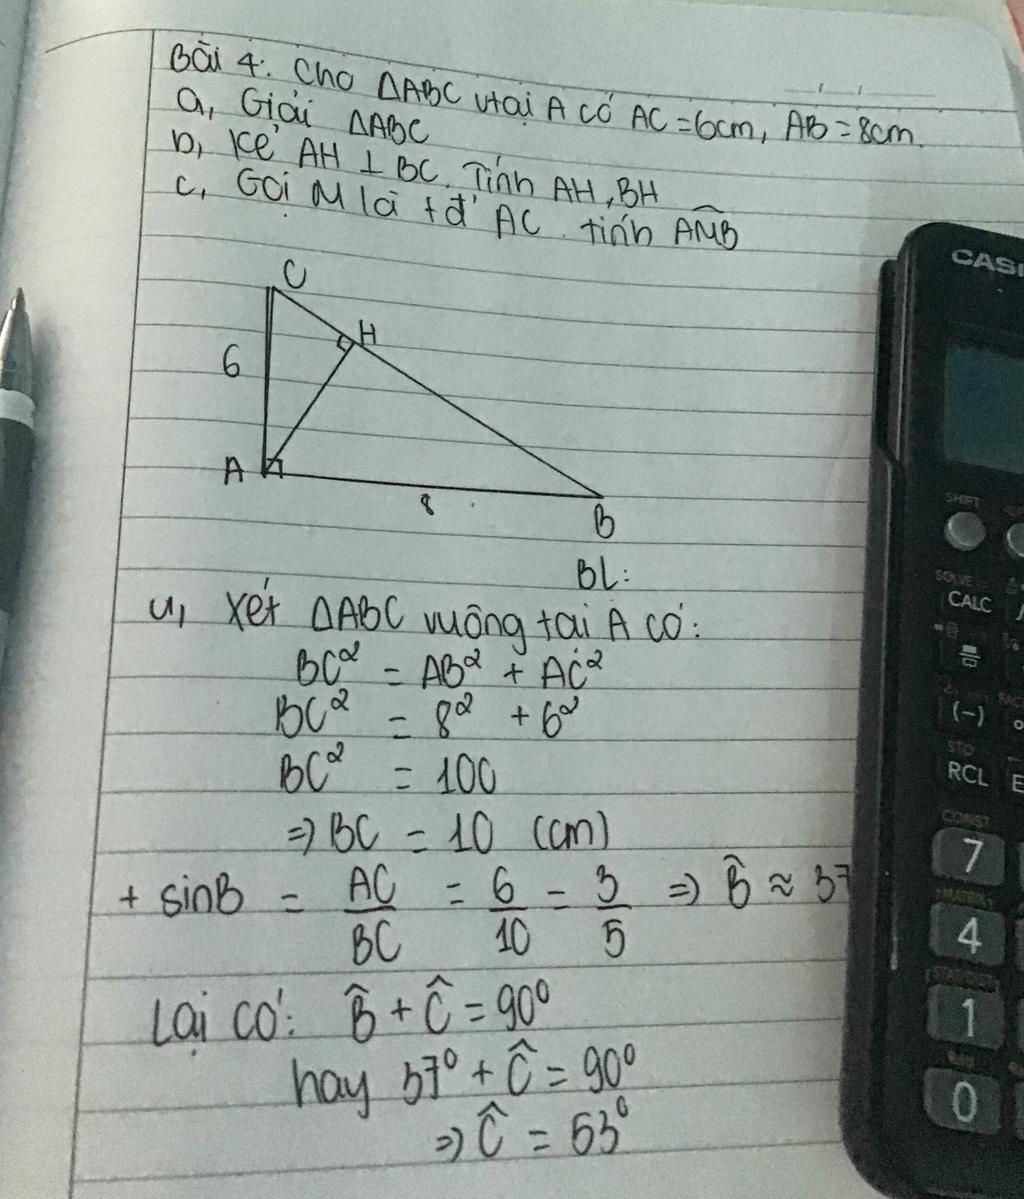 Bài 4. Cho ΔABC vtại A có AC = 6cm, AB = 8cm.
a, Giải ΔABC
b, Kẻ AH ⊥ BC. Tính AH, BH
c, Gọi M là tđ' AC. tính \widehat{AMB}
C
H
6
A
8
B
BL:
a, Xét ΔABC vuông tại A có:
BC² = AB² + AC²
BC² = 8² + 6²
BC² = 100
⇒ BC = 10 (cm)
+ sinB = AC/BC = 6/10 = 3/5 ⇒ B̂ ≈ 37
Lại có: B̂ + Ĉ = 90°
hay 37° + Ĉ = 90°
⇒ Ĉ = 53°
CASI
SHIFT
SOLVE
CALC
(-)
STO
RCL
CONST
7
MATRIX
4
1
0